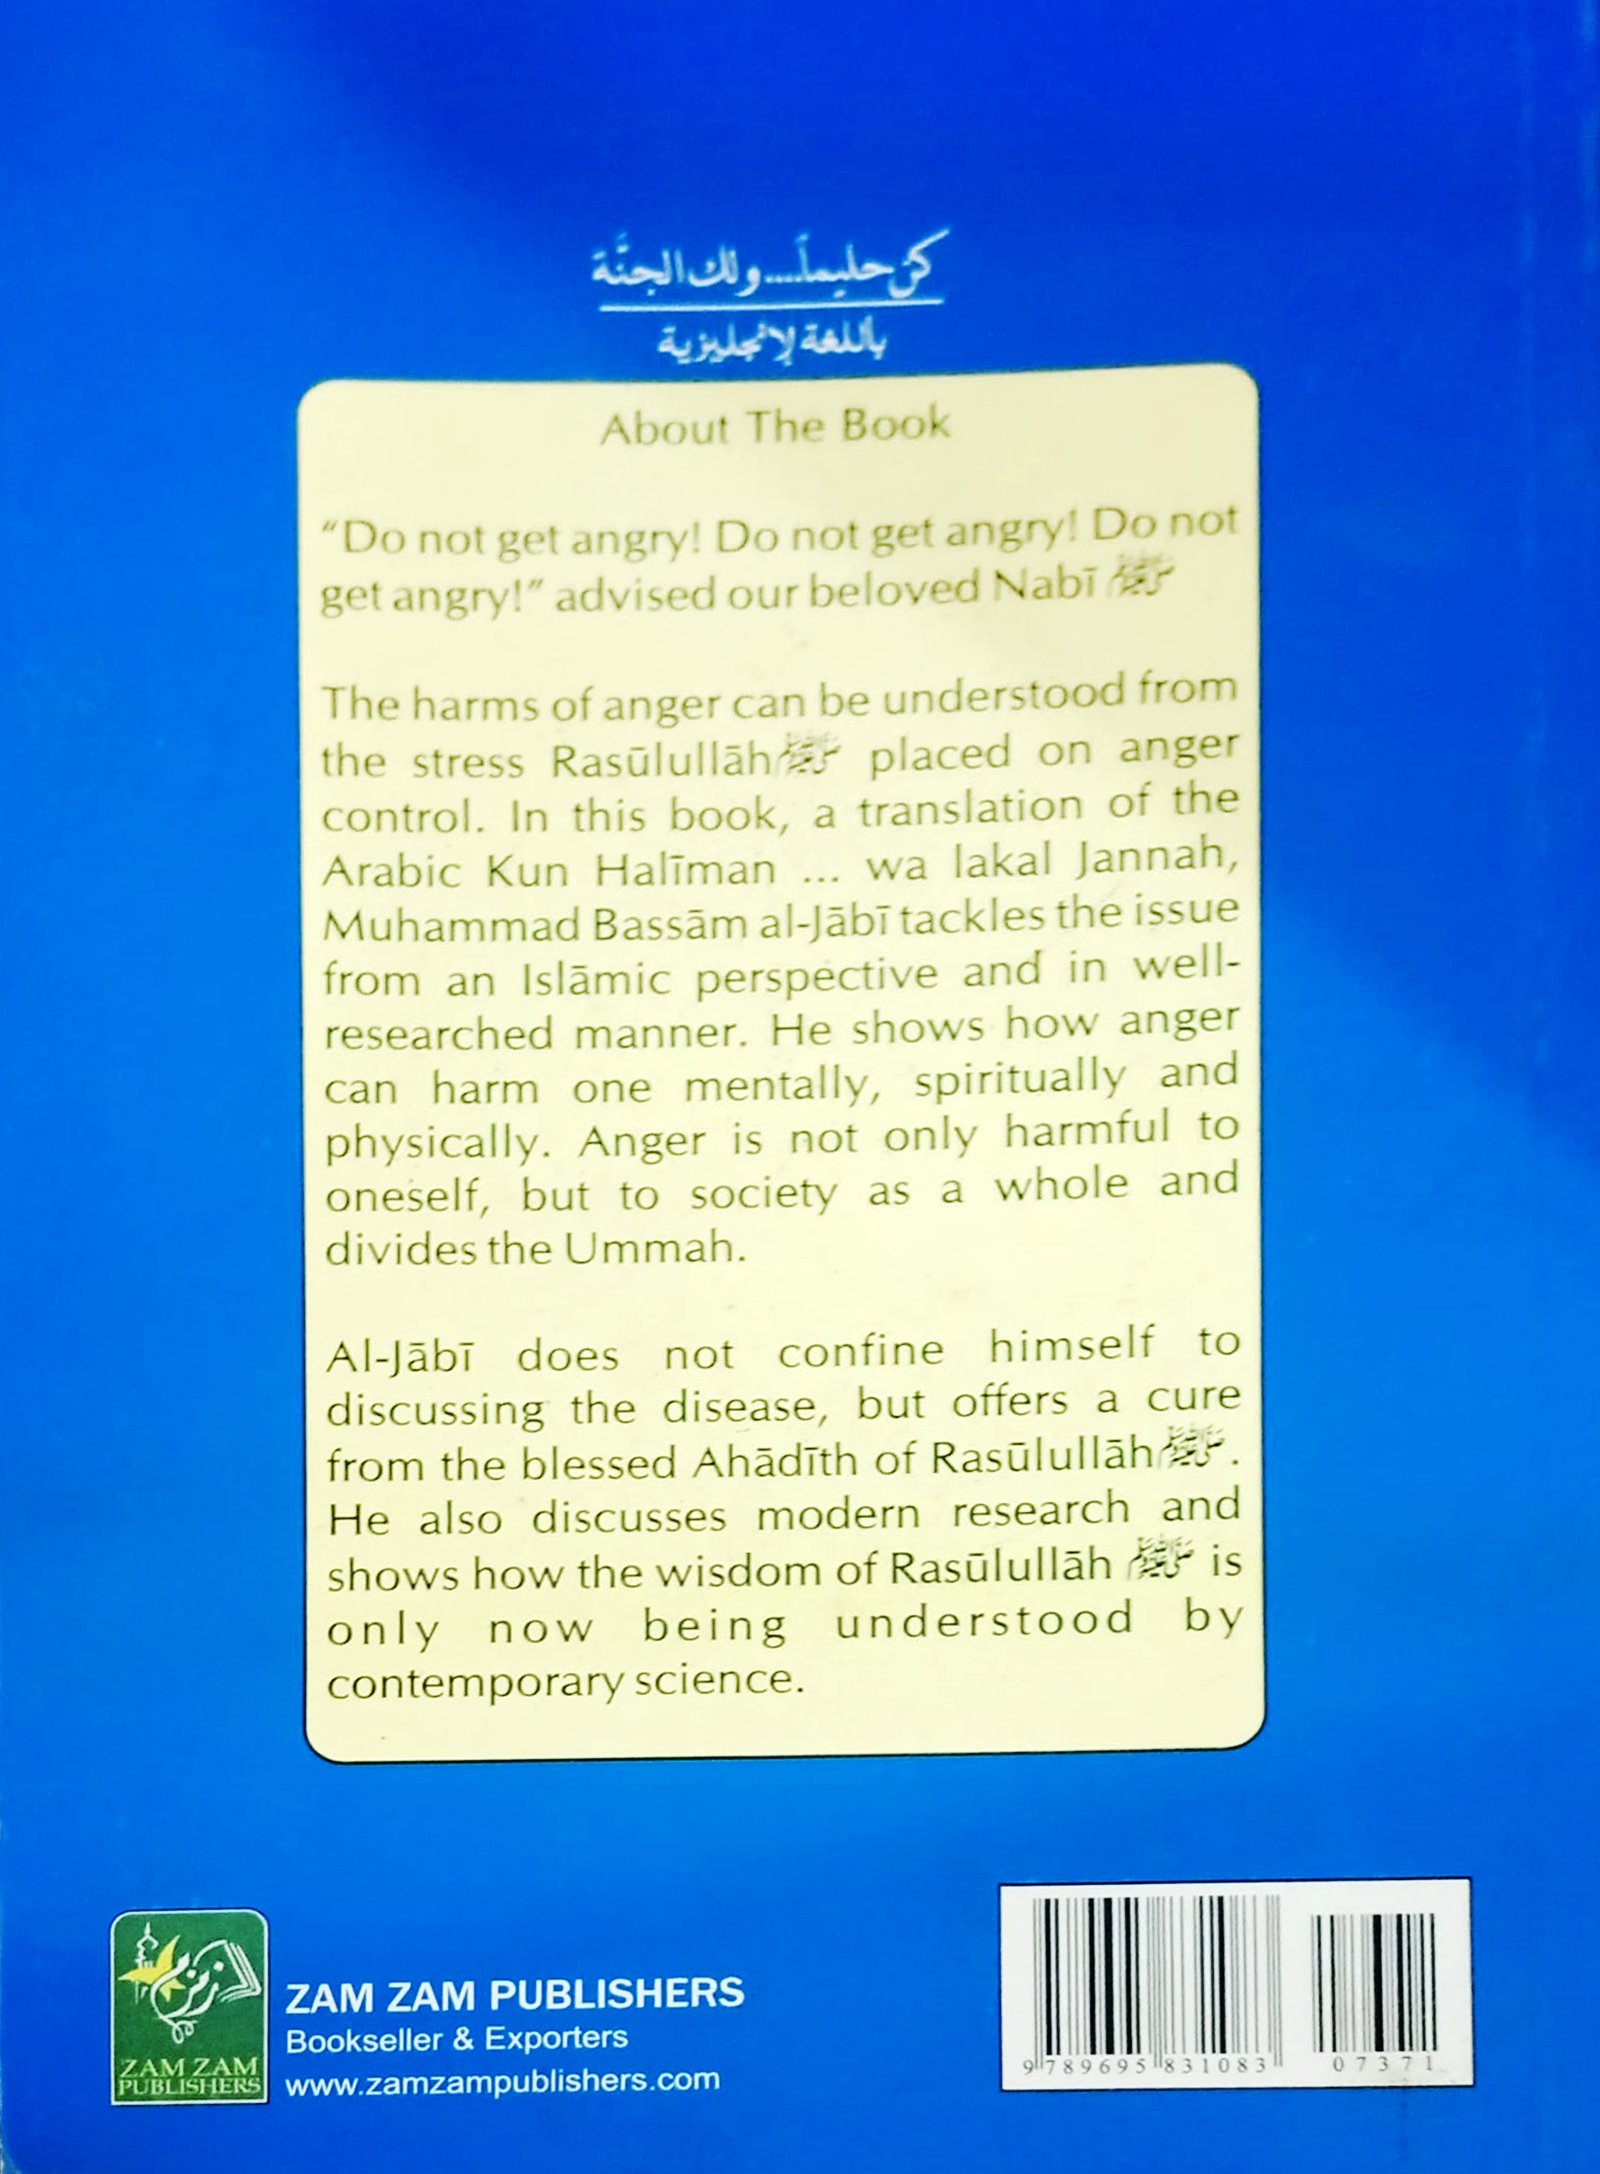 كن حليماً....ولك الجنَّة
باللغة لإنجليزية
About The Book
“Do not get angry! Do not get angry! Do not
get angry!” advised our beloved Nabī ﷺ
The harms of anger can be understood from
the stress Rasūlullāhﷺ placed on anger
control. In this book, a translation of the
Arabic Kun Halīman ... wa lakal Jannah,
Muhammad Bassām al-Jābī tackles the issue
from an Islāmic perspective and in well-
researched manner. He shows how anger
can harm one mentally, spiritually and
physically. Anger is not only harmful to
oneself, but to society as a whole and
divides the Ummah.
Al-Jābī does not confine himself to
discussing the disease, but offers a cure
from the blessed Ahādīth of Rasūlullāhﷺ.
He also discusses modern research and
shows how the wisdom of Rasūlullāh ﷺ is
only now being understood by
contemporary science.
زمزم
ZAM ZAM
PUBLISHERS
ZAM ZAM PUBLISHERS
Bookseller & Exporters
www.zamzampublishers.com
9 789695 831083
07371